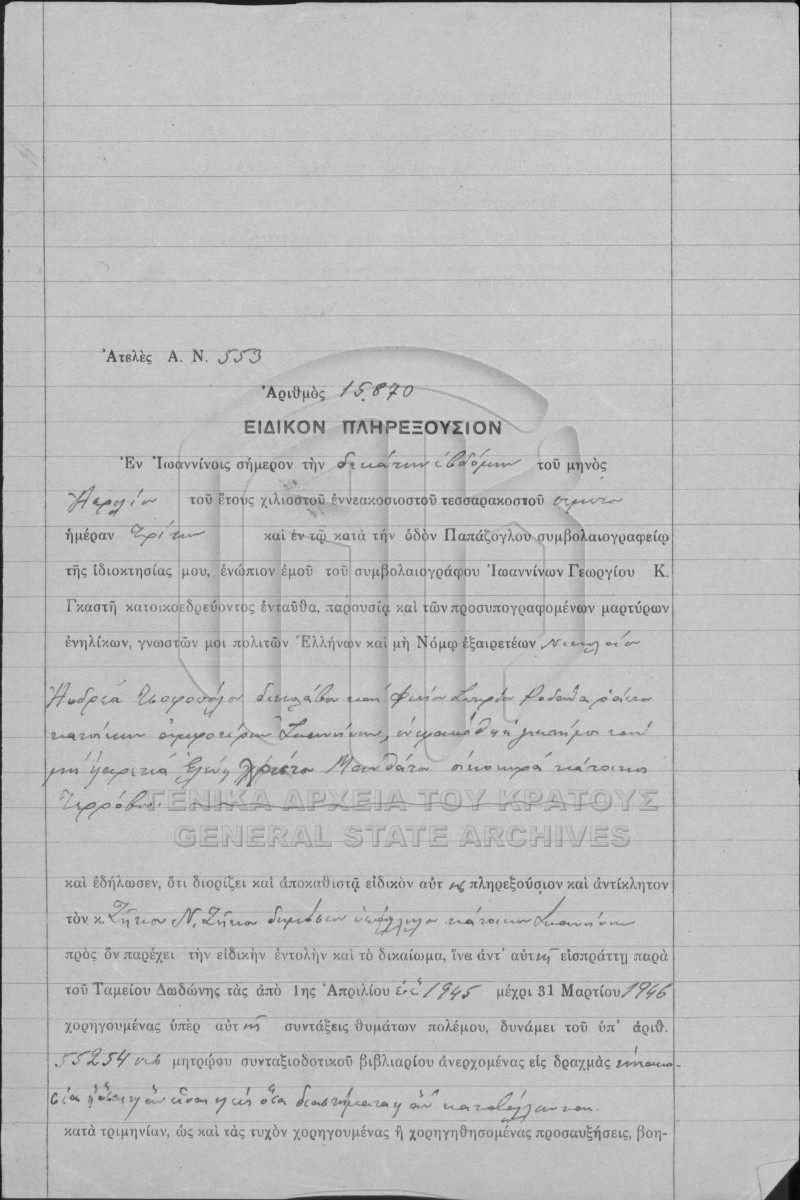 Ἀτελὲς Α. Ν. 553
Ἀριθμὸς 15.870
ΕΙΔΙΚΟΝ ΠΛΗΡΕΞΟΥΣΙΟΝ
Ἐν Ἰωαννίνοις σήμερον τὴν δεκάτην ἑβδόμην τοῦ μηνὸς
Ἀπριλίου τοῦ ἔτους χιλιοστοῦ ἐννεακοσιοστοῦ τεσσαρακοστοῦ πέμπτου
ἡμέραν Τρίτην καὶ ἐν τῷ κατὰ τὴν ὁδὸν Παπάζογλου συμβολαιογραφείῳ
τῆς ἰδιοκτησίας μου, ἐνώπιον ἐμοῦ τοῦ συμβολαιογράφου Ἰωαννίνων Γεωργίου Κ.
Γκαστῆ κατοικοεδρεύοντος ἐνταῦθα, παρουσίᾳ καὶ τῶν προσυπογραφομένων μαρτύρων
ἐνηλίκων, γνωστῶν μοι πολιτῶν Ἑλλήνων καὶ μὴ Νόμῳ ἐξαιρετέων Νικολάου
Ἀνδρέα καὶ
κατοίκων ἀμφοτέρων Ἰωαννίνων, ἐνεφανίσθη ἡ γνωστή μοι καὶ
μὴ ἐξαιρετέα Ἑλένη Χρήστου οἰκοκυρὰ κάτοικος
Τερρόβου.
ΓΕΝΙΚΑ ΑΡΧΕΙΑ ΤΟΥ ΚΡΑΤΟΥΣ
GENERAL STATE ARCHIVES
καὶ ἐδήλωσεν, ὅτι διορίζει καὶ ἀποκαθιστᾷ εἰδικὸν αὐτῆς πληρεξούσιον καὶ ἀντίκλητον
τὸν κ. Ζῆκον Ν. Ζῆκον δημόσιον ὑπάλληλον κάτοικον Ἰωαννίνων
πρὸς ὃν παρέχει τὴν εἰδικὴν ἐντολὴν καὶ τὸ δικαίωμα, ἵνα ἀντ' αὐτῆς εἰσπράττῃ παρὰ
τοῦ Ταμείου Δωδώνης τὰς ἀπὸ 1ης Ἀπριλίου 1945 μέχρι 31 Μαρτίου 1946
χορηγουμένας ὑπὲρ αὐτῆς συντάξεις θυμάτων πολέμου, δυνάμει τοῦ ὑπ' ἀριθ.
55254 μητρῴου συνταξιοδοτικοῦ βιβλιαρίου ἀνερχομένας εἰς δραχμὰς
καταβάλλωνται
κατὰ τριμηνίαν, ὡς καὶ τὰς τυχὸν χορηγουμένας ἢ χορηγηθησομένας προσαυξήσεις, βοη-